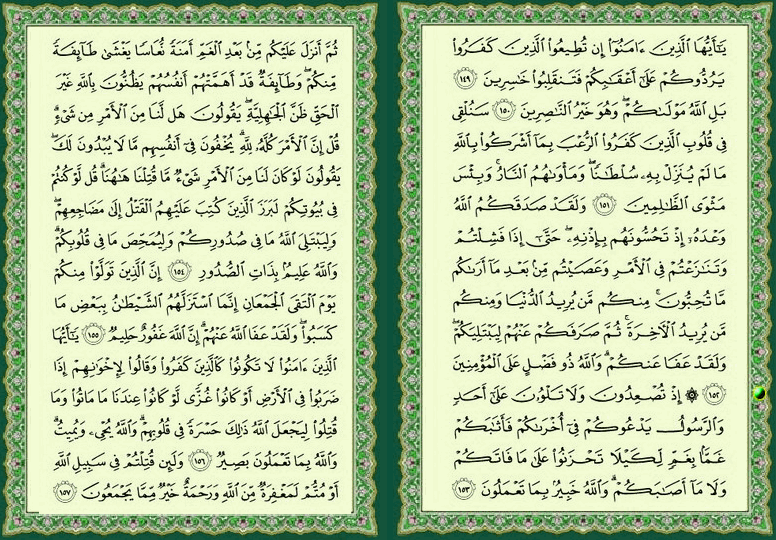 يَٰٓأَيُّهَا ٱلَّذِينَ ءَامَنُوٓا۟ إِن تُطِيعُوا۟ ٱلَّذِينَ كَفَرُوا۟
يَرُدُّوكُمْ عَلَىٰٓ أَعْقَٰبِكُمْ فَتَنقَلِبُوا۟ خَٰسِرِينَ ١٤٩
بَلِ ٱللَّهُ مَوْلَىٰكُمْ ۖ وَهُوَ خَيْرُ ٱلنَّٰصِرِينَ ١٥٠ سَنُلْقِى
فِى قُلُوبِ ٱلَّذِينَ كَفَرُوا۟ ٱلرُّعْبَ بِمَآ أَشْرَكُوا۟ بِٱللَّهِ
مَا لَمْ يُنَزِّلْ بِهِۦ سُلْطَٰنًا ۖ وَمَأْوَىٰهُمُ ٱلنَّارُ ۚ وَبِئْسَ
مَثْوَى ٱلظَّٰلِمِينَ ١٥١ وَلَقَدْ صَدَقَكُمُ ٱللَّهُ
وَعْدَهُۥٓ إِذْ تَحُسُّونَهُم بِإِذْنِهِۦ ۖ حَتَّىٰٓ إِذَا فَشِلْتُمْ
وَتَنَٰزَعْتُمْ فِى ٱلْأَمْرِ وَعَصَيْتُم مِّنۢ بَعْدِ مَآ أَرَىٰكُم
مَّا تُحِبُّونَ ۚ مِنكُم مَّن يُرِيدُ ٱلدُّنْيَا وَمِنكُم
مَّن يُرِيدُ ٱلْءَاخِرَةَ ۚ ثُمَّ صَرَفَكُمْ عَنْهُمْ لِيَبْتَلِيَكُمْ ۖ
وَلَقَدْ عَفَا عَنكُمْ ۗ وَٱللَّهُ ذُو فَضْلٍ عَلَى ٱلْمُؤْمِنِينَ
١٥٢ ۞ إِذْ تُصْعِدُونَ وَلَا تَلْوُۥنَ عَلَىٰٓ أَحَدٍ
وَٱلرَّسُولُ يَدْعُوكُمْ فِىٓ أُخْرَىٰكُمْ فَأَثَٰبَكُمْ
غَمًّۢا بِغَمٍّ لِّكَيْلَا تَحْزَنُوا۟ عَلَىٰ مَا فَاتَكُمْ
وَلَا مَآ أَصَٰبَكُمْ ۗ وَٱللَّهُ خَبِيرٌۢ بِمَا تَعْمَلُونَ ١٥٣
ثُمَّ أَنزَلَ عَلَيْكُم مِّنۢ بَعْدِ ٱلْغَمِّ أَمَنَةً نُّعَاسًا يَغْشَىٰ طَآئِفَةً
مِّنكُمْ ۖ وَطَآئِفَةٌ قَدْ أَهَمَّتْهُمْ أَنفُسُهُمْ يَظُنُّونَ بِٱللَّهِ غَيْرَ
ٱلْحَقِّ ظَنَّ ٱلْجَٰهِلِيَّةِ ۖ يَقُولُونَ هَل لَّنَا مِنَ ٱلْأَمْرِ مِن شَىْءٍ ۗ
قُلْ إِنَّ ٱلْأَمْرَ كُلَّهُۥ لِلَّهِ ۗ يُخْفُونَ فِىٓ أَنفُسِهِم مَّا لَا يُبْدُونَ لَكَ ۖ
يَقُولُونَ لَوْ كَانَ لَنَا مِنَ ٱلْأَمْرِ شَىْءٌ مَّا قُتِلْنَا هَٰهُنَا ۗ قُل لَّوْ كُنتُمْ
فِى بُيُوتِكُمْ لَبَرَزَ ٱلَّذِينَ كُتِبَ عَلَيْهِمُ ٱلْقَتْلُ إِلَىٰ مَضَاجِعِهِمْ ۖ
وَلِيَبْتَلِىَ ٱللَّهُ مَا فِى صُدُورِكُمْ وَلِيُمَحِّصَ مَا فِى قُلُوبِكُمْ ۗ
وَٱللَّهُ عَلِيمٌۢ بِذَاتِ ٱلصُّدُورِ ١٥٤ إِنَّ ٱلَّذِينَ تَوَلَّوْا۟ مِنكُمْ
يَوْمَ ٱلْتَقَى ٱلْجَمْعَانِ إِنَّمَا ٱسْتَزَلَّهُمُ ٱلشَّيْطَٰنُ بِبَعْضِ مَا
كَسَبُوا۟ ۖ وَلَقَدْ عَفَا ٱللَّهُ عَنْهُمْ ۗ إِنَّ ٱللَّهَ غَفُورٌ حَلِيمٌ ١٥٥ يَٰٓأَيُّهَا
ٱلَّذِينَ ءَامَنُوا۟ لَا تَكُونُوا۟ كَٱلَّذِينَ كَفَرُوا۟ وَقَالُوا۟ لِإِخْوَٰنِهِمْ إِذَا
ضَرَبُوا۟ فِى ٱلْأَرْضِ أَوْ كَانُوا۟ غُزًّى لَّوْ كَانُوا۟ عِندَنَا مَا مَاتُوا۟ وَمَا
قُتِلُوا۟ لِيَجْعَلَ ٱللَّهُ ذَٰلِكَ حَسْرَةً فِى قُلُوبِهِمْ ۗ وَٱللَّهُ يُحْىِۦ وَيُمِيتُ ۗ
وَٱللَّهُ بِمَا تَعْمَلُونَ بَصِيرٌ ١٥٦ وَلَئِن قُتِلْتُمْ فِى سَبِيلِ ٱللَّهِ
أَوْ مُتُّمْ لَمَغْفِرَةٌ مِّنَ ٱللَّهِ وَرَحْمَةٌ خَيْرٌ مِّمَّا يَجْمَعُونَ ١٥٧